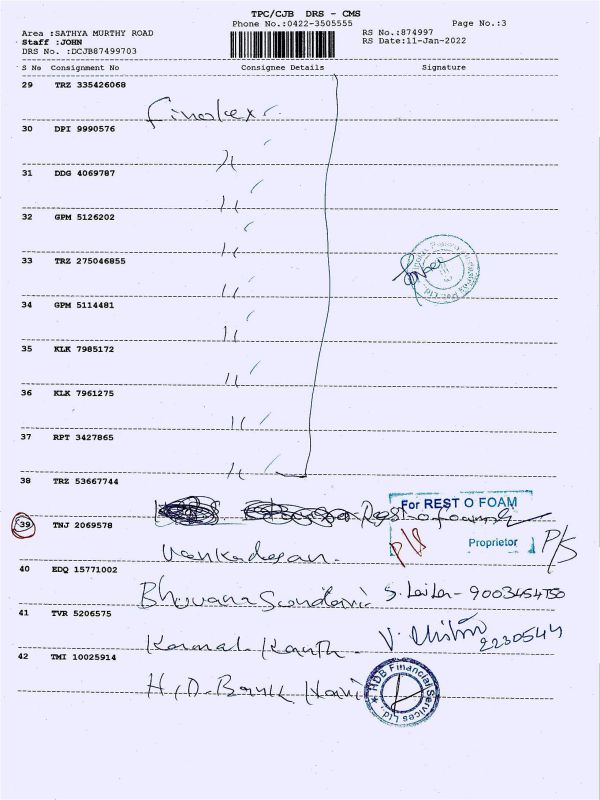 TPC/CJB DRS - CMS
Phone No.:0422-3505555
Page No.:3
Area :SATHYA MURTHY ROAD
Staff :JOHN
DRS No. :DCJB87499703
RS No.:874997
RS Date:11-Jan-2022
S No Consignment No Consignee Details Signature
29 TRZ 335426068
30 DPI 9990576
〃
31 DDG 4069787
〃
32 GPM 5126202
〃
33 TRZ 275046855
〃
34 GPM 5114481
〃
35 KLK 7985172
〃
36 KLK 7961275
〃
37 RPT 3427865
〃
38 TRZ 53667744
Rest-o-foams
For REST O FOAM
Proprietor
P/S
P/S
39 TNJ 2069578
Venkadesan.
40 EDQ 15771002
Bhuvana Sundari S. Laila - 9003454750
41 TVR 5206575
Kamal Kanth - V. 2230544
42 TMI 10025914
H.D. Bank
HDB Financial Services Ltd.